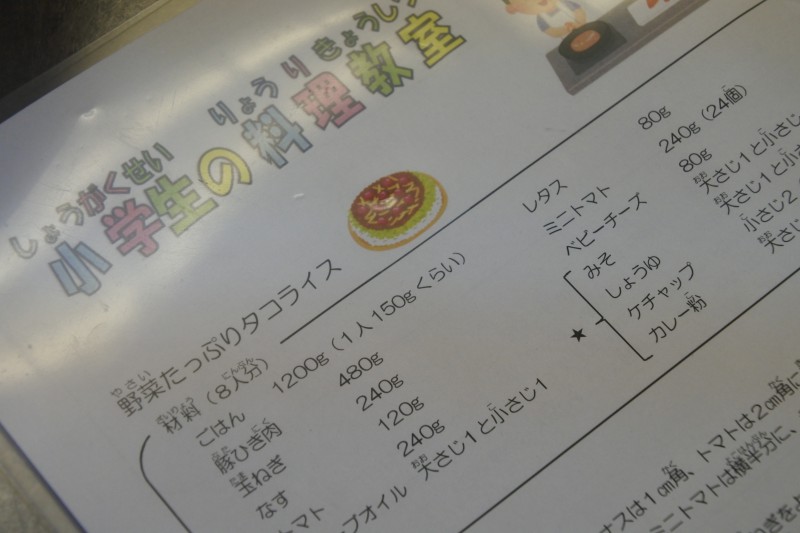 しょうがくせい りょうり きょうしつ
小学生の料理教室
やさい
野菜たっぷりタコライス
材料（8人分）
ごはん 1200g（1人150gくらい）
豚ひき肉 480g
玉ねぎ 240g
なす 120g
トマト 240g
ブオイル 大さじ1と小さじ1
レタス 80g
ミニトマト 240g（24個）
ベビーチーズ 80g
★
みそ 大さじ1と小さじ
しょうゆ 大さじ1と小さ
ケチャップ 小さじ2
カレー粉 大さじ
ナスは1cm角、トマトは2cm角に
ミニトマトは横半分に、